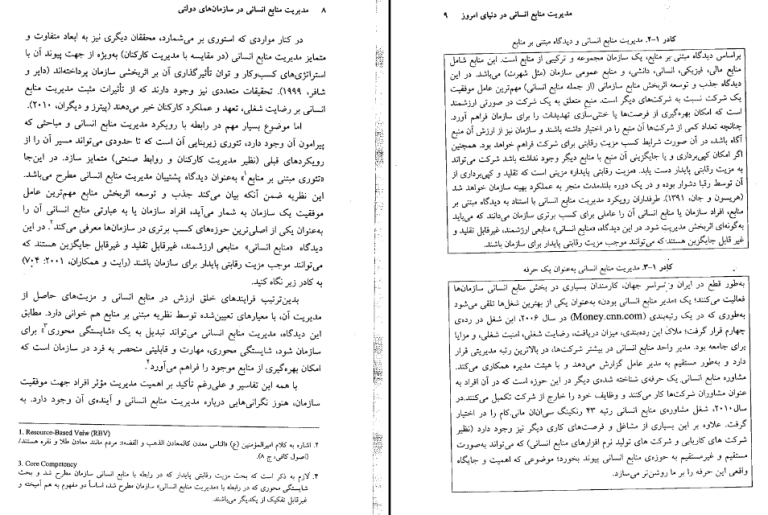 ۸ مدیریت منابع انسانی در سازمان‌های دولتی
در کنار مواردی که استوری بر می‌شمارد، محققان دیگری نیز به ابعاد متفاوت و
متمایز مدیریت منابع انسانی (در مقایسه با مدیریت کارکنان) به‌ویژه از جهت پیوند آن با
استراتژی‌های کسب‌وکار و توان تأثیرگذاری آن بر اثربخشی سازمان پرداخته‌اند (دایر و
شافر، ۱۹۹۹). تحقیقات متعددی نیز وجود دارند که از تأثیرات مثبت مدیریت منابع
انسانی بر رضایت شغلی، تعهد و عملکرد کارکنان خبر می‌دهند (پیترز و دیگران، ۲۰۱۰).
اما موضوع بسیار مهم در رابطه با رویکرد مدیریت منابع انسانی و مباحثی که
پیرامون آن وجود دارد، تئوری زیربنایی آن است که تا حدودی می‌تواند مسیر آن را از
رویکردهای قبلی (نظیر مدیریت کارکنان و روابط صنعتی) متمایز سازد. در این‌جا
«تئوری مبتنی بر منابع۱» به‌عنوان دیدگاه پشتیبان مدیریت منابع انسانی مطرح می‌باشد.
این نظریه ضمن آنکه بیان می‌کند جذب و توسعه اثربخش منابع مهم‌ترین عامل
موفقیت یک سازمان به شمار می‌آید، افراد سازمان یا به عبارتی منابع انسانی آن را
به‌عنوان یکی از اصلی‌ترین حوزه‌های کسب برتری در سازمان‌ها معرفی می‌کند۲. در این
دیدگاه «منابع انسانی» منابعی ارزشمند، غیرقابل تقلید و غیرقابل جایگزین هستند که
می‌توانند موجب مزیت رقابتی پایدار برای سازمان باشند (رایت و همکاران، ۲۰۰۱: ۷۰۴)
به کادر زیر نگاه کنید.
بدین‌ترتیب فرایندهای خلق ارزش در منابع انسانی و مزیت‌های حاصل از
مدیریت آن، با معیارهای تعیین‌شده توسط نظریه مبتنی بر منابع هم خوانی دارد. مطابق
این دیدگاه، مدیریت منابع انسانی می‌تواند تبدیل به یک «شایستگی محوری۳» برای
سازمان شود، شایستگی محوری، مهارت و قابلیتی منحصر به فرد در سازمان است که
امکان بهره‌گیری از منابع موجود را فراهم می‌آورد۴.
با همه این تفاسیر و علی‌رغم تأکید بر اهمیت مدیریت مؤثر افراد جهت موفقیت
سازمان، هنوز نگرانی‌هایی درباره مدیریت منابع انسانی و آینده‌ی آن وجود دارد. به
1. Resource-Based Veiw (RBV)
۲. اشاره به کلام امیرالمؤمنین (ع) «الناس معدن کالمعادن الذهب و الفضه»: مردم مانند معادن طلا و نقره هستند/
(اصول کافی، ج ۸).
3. Core Competency
۴. لازم به ذکر است که بحث مزیت رقابتی پایدار که در رابطه با منابع انسانی سازمان مطرح شد و بحث
شایستگی محوری که در رابطه با «مدیریت منابع انسانی» سازمان مطرح شد، اساساً دو مفهوم به هم آمیخته و
غیرقابل تفکیک از یکدیگر می‌باشند.
مدیریت منابع انسانی در دنیای امروز ۹
کادر ۱-۲. مدیریت منابع انسانی و دیدگاه مبتنی بر منابع
براساس دیدگاه مبتنی بر منابع، یک سازمان مجموعه و ترکیبی از منابع است. این منابع شامل
منابع مالی، فیزیکی، انسانی، دانشی، و منابع عمومی سازمان (مثل شهرت) می‌باشد. در این
دیدگاه جذب و توسعه اثربخش منابع سازمانی (از جمله منابع انسانی) مهم‌ترین عامل موفقیت
یک شرکت نسبت به شرکت‌های دیگر است. منبع متعلق به یک شرکت در صورتی ارزشمند
است که امکان بهره‌گیری از فرصت‌ها یا خنثی‌سازی تهدیدات را برای سازمان فراهم آورد.
چنانچه تعداد کمی از شرکت‌ها آن منبع را در اختیار داشته باشند و سازمان نیز از ارزش آن منبع
آگاه باشد، در آن صورت شرایط کسب مزیت رقابتی برای شرکت فراهم خواهد بود. همچنین
اگر امکان کپی‌برداری و یا جایگزینی آن منبع با منابع دیگر وجود نداشته باشد شرکت می‌تواند
به مزیت رقابتی پایدار دست یابد. هزیت رقابتی پایدار» مزیتی است که تقلید و کپی‌برداری از
آن توسط رقبا دشوار بوده و در یک دوره بلندمدت منجر به عملکرد بهینه سازمان خواهد شد
(هریسون و جان، ۱۳۹۱). طرفداران رویکرد مدیریت منابع انسانی با استناد به دیدگاه مبتنی بر
منابع، افراد سازمان یا منابع انسانی آن را عاملی برای کسب برتری سازمان می‌دانند که می‌باید
به‌گونه‌ای اثربخش مدیریت شود. در این دیدگاه، «منابع انسانی» منابعی ارزشمند، غیرقابل تقلید و
غیر قابل جایگزین هستند که می‌توانند موجب مزیت رقابتی پایدار برای سازمان باشند.
کادر ۱-۳. مدیریت منابع انسانی به‌عنوان یک حرفه
به‌طور قطع در ایران و سراسر جهان، کارمندان بسیاری در بخش منابع انسانی سازمان‌ها
فعالیت می‌کنند؛ یک «مدیر منابع انسانی بودن» به‌عنوان یکی از بهترین شغل‌ها تلقی می‌شود
به‌طوری که در یک رتبه‌بندی (Money.cnn.com) در سال ۲۰۰۶، این شغل در رده‌ی
چهارم قرار گرفت؛ ملاک این رده‌بندی، میزان دریافت، رضایت شغلی، امنیت شغلی، و مزایا
برای جامعه بود. مدیر واحد منابع انسانی در بیشتر شرکت‌ها، در بالاترین رتبه مدیریتی قرار
دارد و به‌طور مستقیم به مدیر عامل گزارش می‌دهد و با هیئت مدیره همکاری می‌کند.
مشاوره منابع انسانی یک حرفه‌ی شناخته شده‌ی دیگر در این حوزه است که در آن افراد به
عنوان مشاوران شرکت‌ها کار می‌کنند و وظایف خود را خارج از شرکت تکمیل می‌کنند.در
سال۲۰۱۰، شغل مشاوره‌ی منابع انسانی رتبه ۴۳ رنکینگ سی‌ان‌ان مانی.کام را در اختیار
گرفت. علاوه بر این بسیاری از مشاغل و فرصت‌های کاری دیگر نیز وجود دارد (نظیر
شرکت های کاریابی و شرکت های تولید نرم افزارهای منابع انسانی) که می‌تواند به‌صورت
مستقیم و غیرمستقیم به حوزه‌ی منابع انسانی پیوند بخورد؛ موضوعی که اهمیت و جایگاه
واقعی این حرفه را بر ما روشن‌تر می‌سازد.